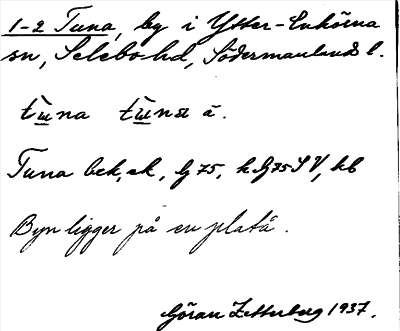 1-2 Tuna, by i Ytter-Enhörna
sn, Selebo hd, Södermanlands l.
tùna tùna ā.
Tuna bek, ek, Gj 75, k Gj 75 S V, kb
Byn ligger på en platå.
Göran Zetterberg 1937.